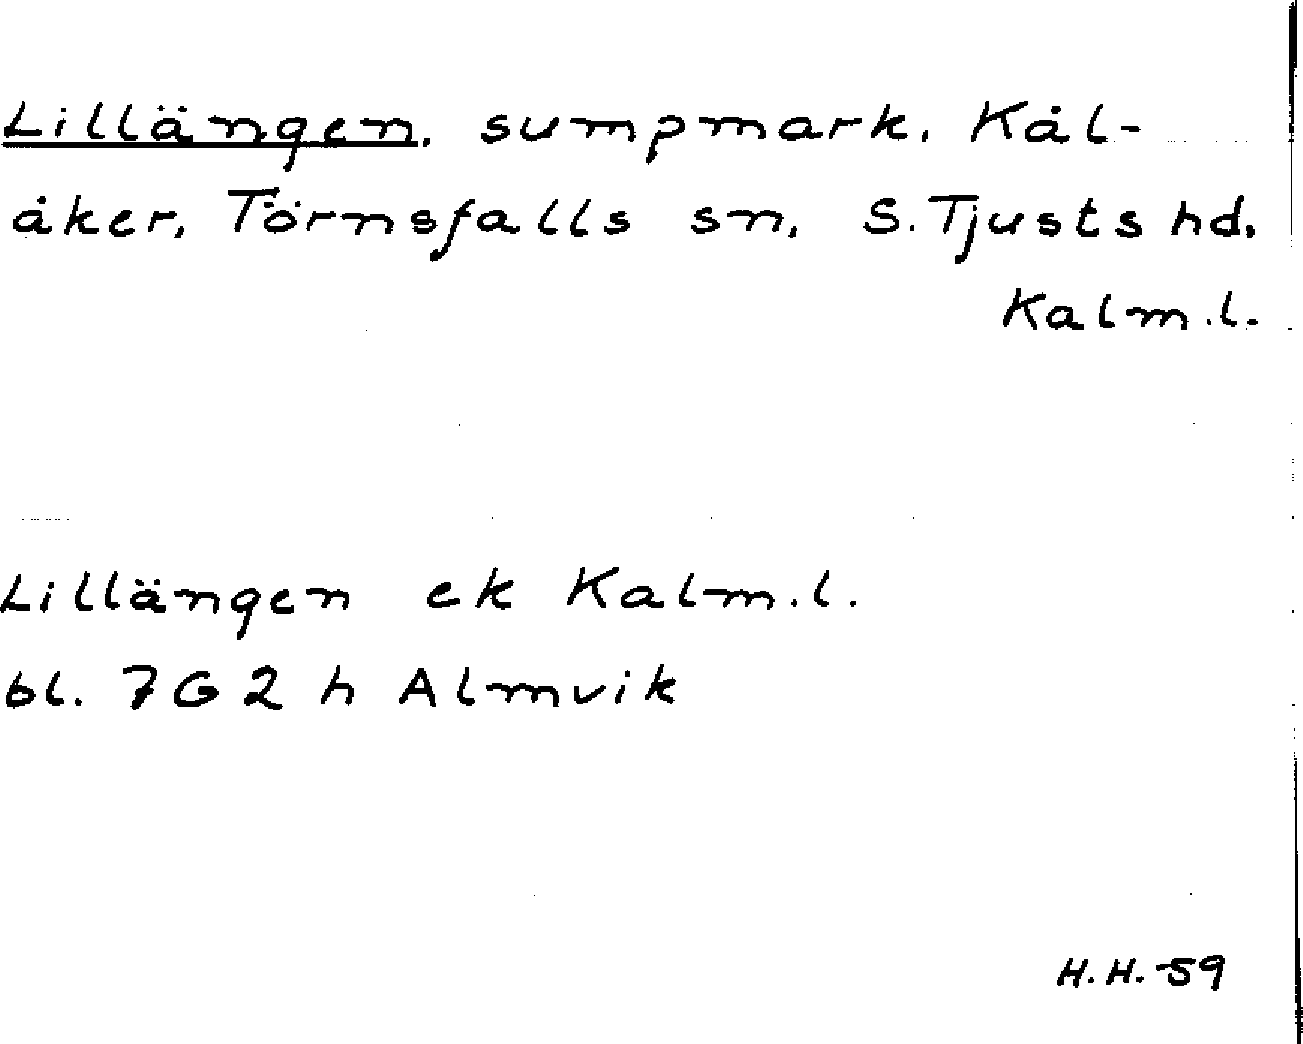 Lillängen, sumpmark, Kål-
åker, Törnsfalls sn, S. Tjusts hd,
Kalm.l.
Lillängen ek Kalm.l.
bl. 7G2h Almvik
H.H.-59